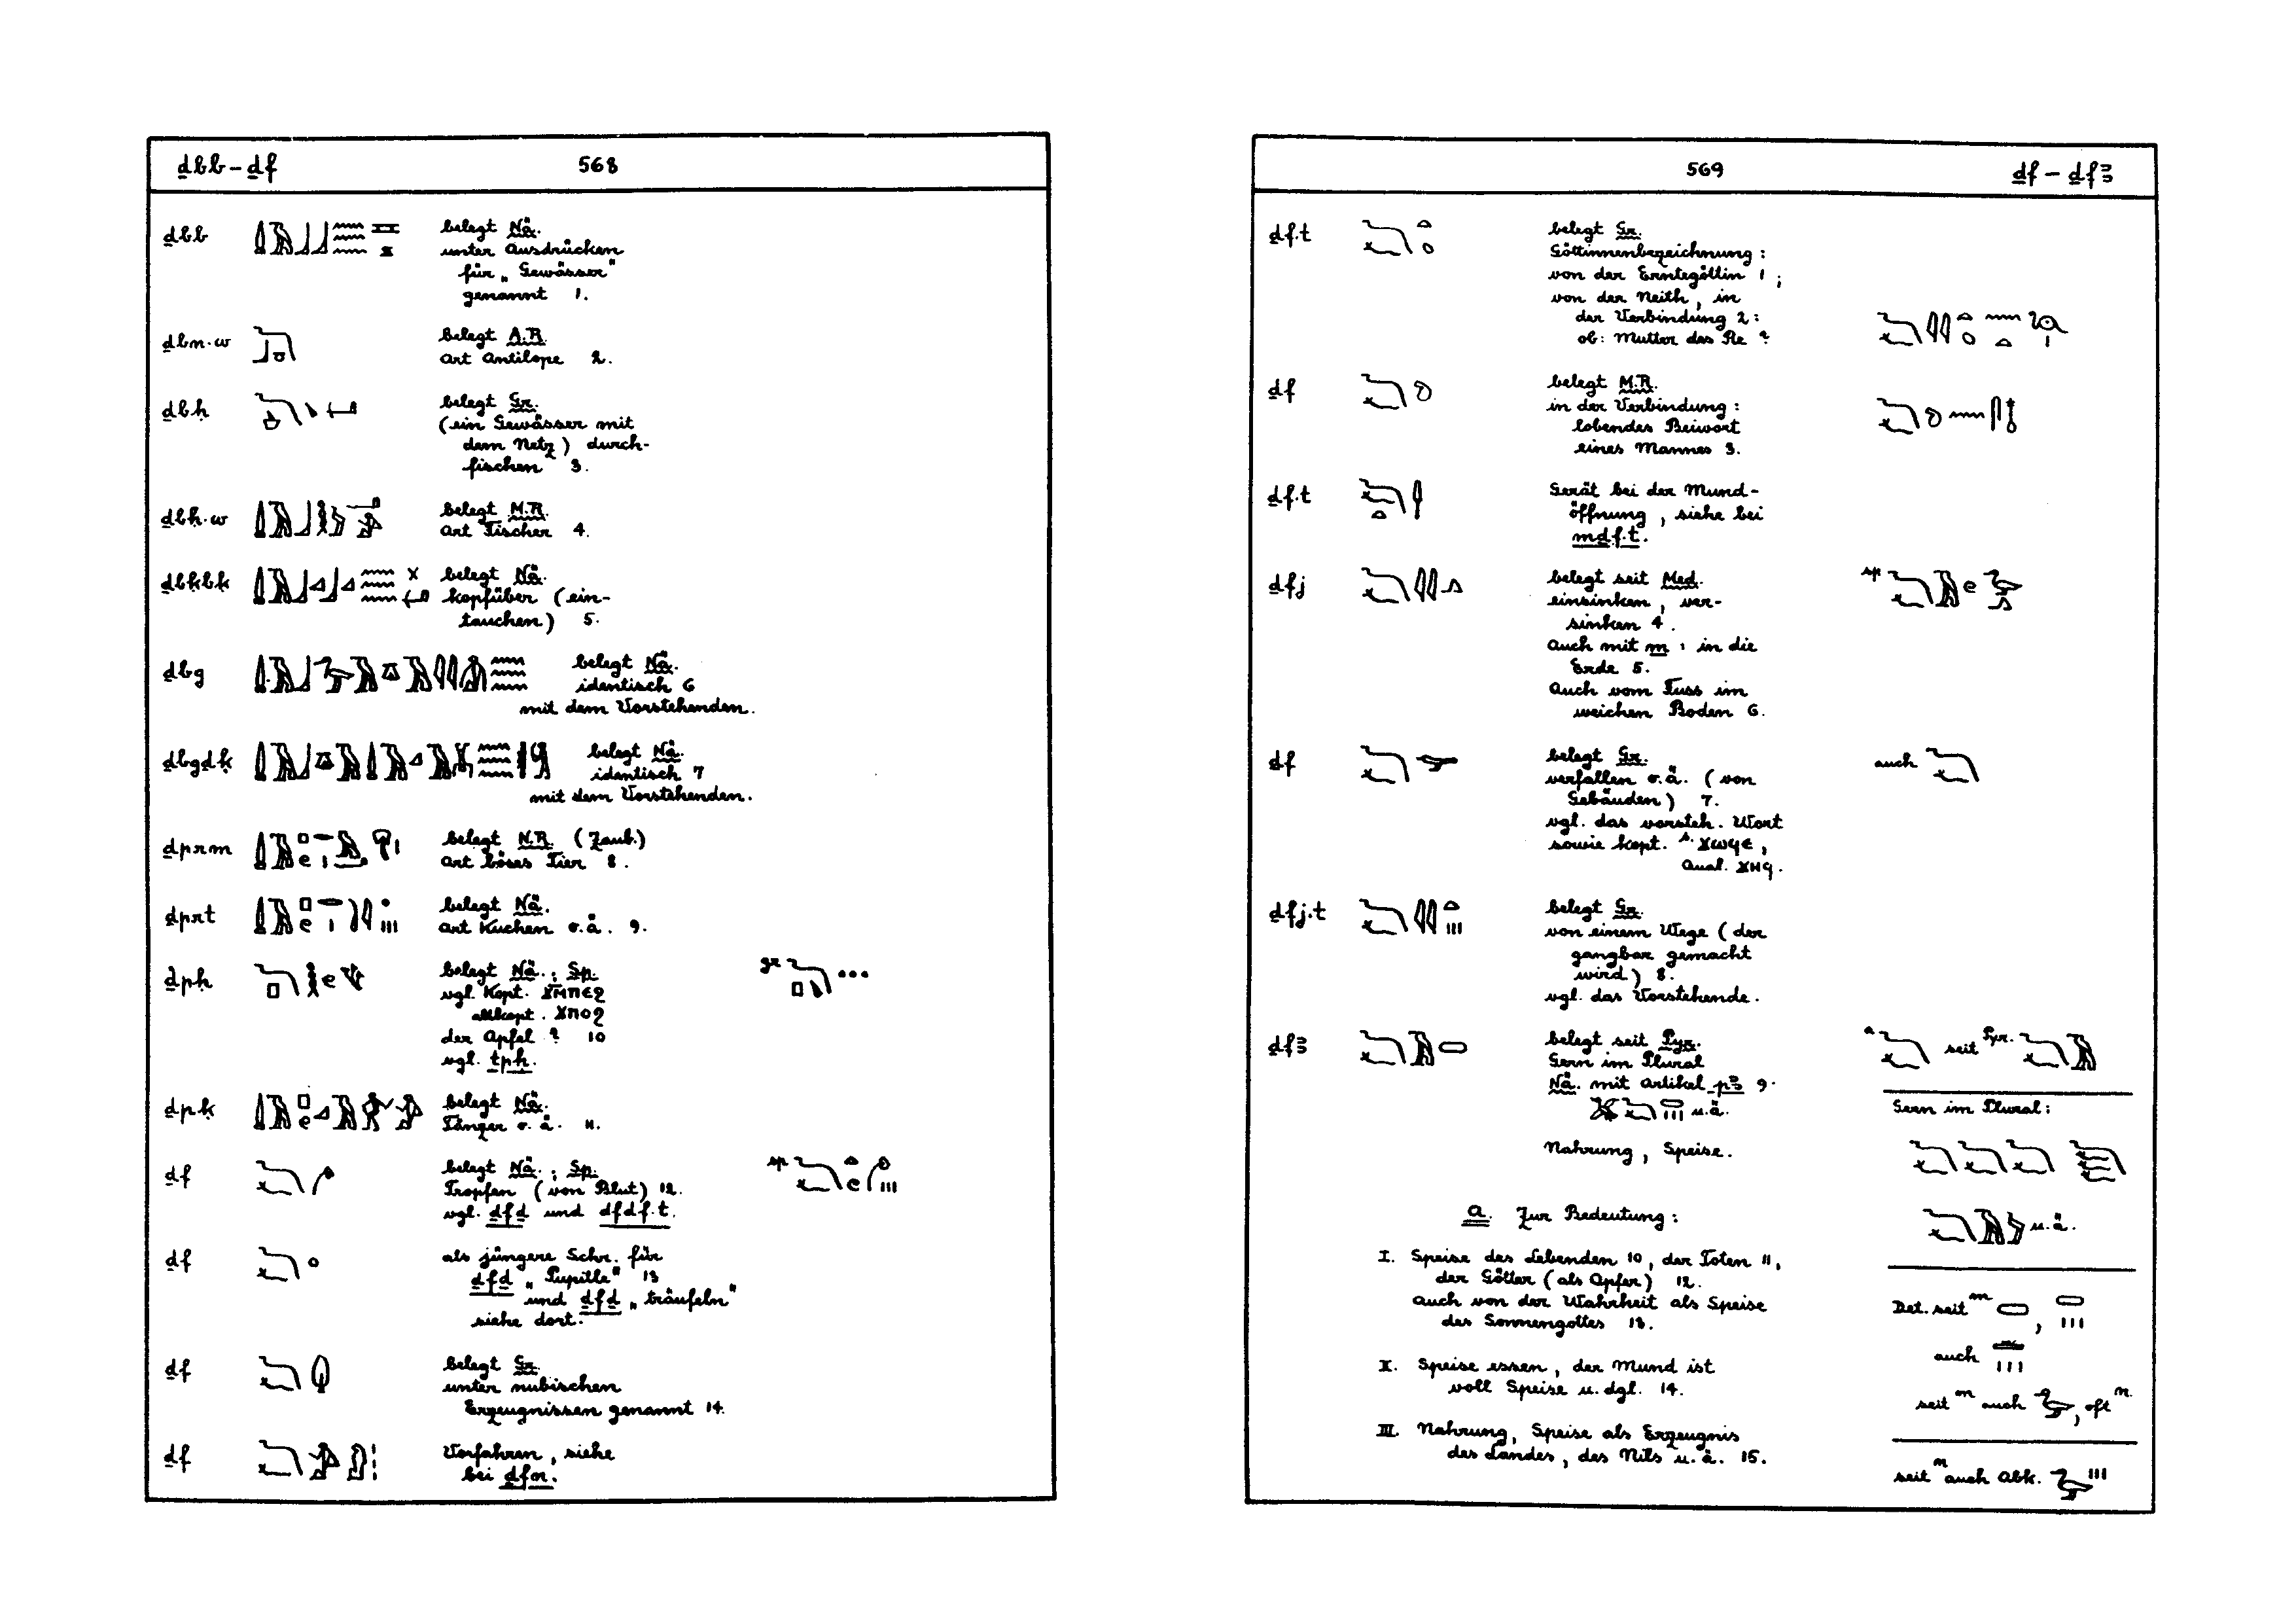 ḏbb – ḏf
568
ḏbb
belegt Nä.
unter Ausdrücken
für „Gewässer"
genannt 1.
ḏbn.w
belegt A.R.
Art Antilope 2.
ḏbḥ
belegt Gr.
(ein Gewässer mit
dem Netz) durch-
fischen 3.
ḏbḥ.w
belegt M.R.
Art Fischer 4.
ḏbḳbḳ
belegt Nä.
kopfüber (ein-
tauchen) 5.
ḏbg
belegt Nä.
identisch 6
mit dem Vorstehenden.
ḏbgḏḳ
belegt Nä.
identisch 7
mit dem Vorstehenden.
ḏprm
belegt N.R. (Zaub.)
Art böses Tier 8.
ḏprt
belegt Nä.
Art Kuchen o.ä. 9.
ḏpḥ
belegt Nä.; Sp.
gr
vgl. Kopt. ϫⲙ̄ⲡⲉϩ
altkopt. ϫⲡⲟϩ
der Apfel ? 10
vgl. tpḥ.
ḏpḳ
belegt Nä.
Tänzer o.ä. 11.
ḏf
belegt Nä.; Sp.
sp
Tropfen (von Blut) 12.
vgl. ḏfḏ und ḏfḏf.t.
ḏf
als jüngere Schr. für
ḏfḏ „Pupille" 13
und ḏfḏ „träufeln"
siehe dort.
ḏf
belegt Gr.
unter nubischen
Erzeugnissen genannt 14.
ḏf
Vorfahren, siehe
bei ḏfn.
569
ḏf – ḏfꜣ
ḏf.t
belegt Gr.
Göttinnenbezeichnung:
von der Erntegöttin 1;
von der Neith, in
der Verbindung 2:
ob: Mutter des Re ?
ḏf
belegt M.R.
in der Verbindung:
lobendes Beiwort
eines Mannes 3.
ḏf.t
Gerät bei der Mund-
öffnung, siehe bei
mḏf.t.
ḏfj
belegt seit Med.
sp
einsinken, ver-
sinken 4.
Auch mit m: in die
Erde 5.
Auch vom Fuss im
weichen Boden 6.
ḏf
belegt Gr.
auch
verfallen o.ä. (von
Gebäuden) 7.
vgl. das vorsteh. Wort
sowie kopt. A. ϫⲱϥⲉ,
Qual. ϫⲏϥ.
ḏfj.t
belegt Gr.
von einem Wege (der
gangbar gemacht
wird) 8.
vgl. das Vorstehende.
ḏfꜣ
belegt seit Pyr.
Gern im Plural
Nä. mit Artikel pꜣ 9.
u.ä.
Nahrung, Speise.
a. Zur Bedeutung:
I. Speise des Lebenden 10, der Toten 11,
der Götter (als Opfer) 12.
auch von der Wahrheit als Speise
des Sonnengottes 13.
II. Speise essen, der Mund ist
voll Speise u. dgl. 14.
III. Nahrung, Speise als Erzeugnis
des Landes, des Nils u.ä. 15.
a seit Pyr.
Gern im Plural:
u.ä.
Det. seit m ,
auch
seit m auch , oft n.
seit n auch Abk.